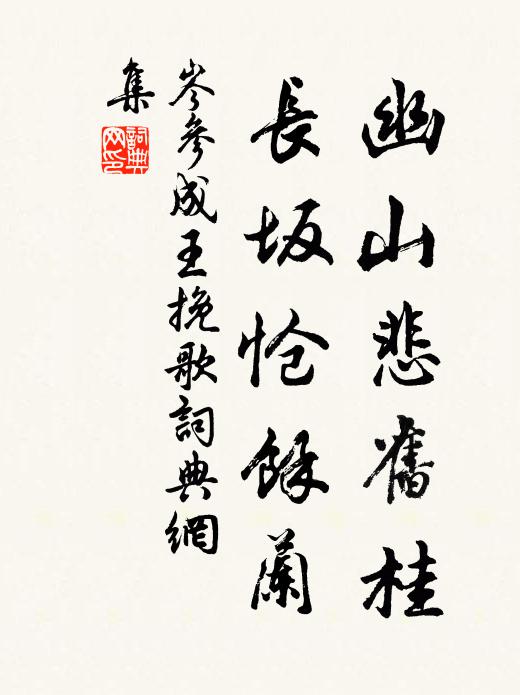 幽山悲舊桂
長坂愴餘蘭
岑參成王挽歌詞典網
集
詞典網印